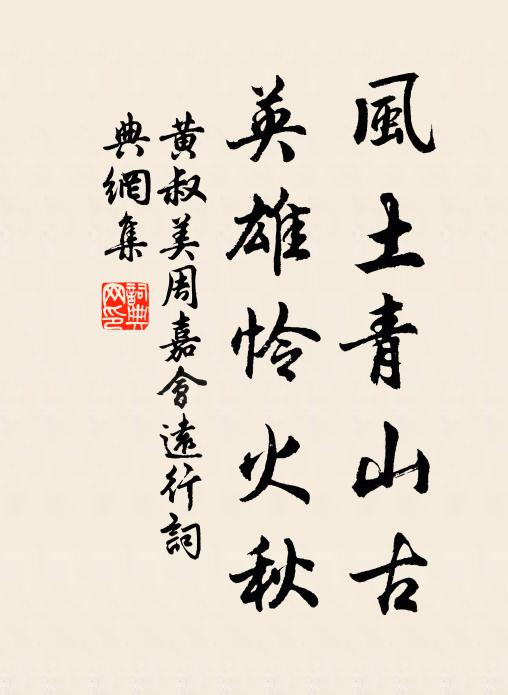 風土青山古
英雄怜火秋
黄叔美周嘉會遠行詞
典網集
詞典網印